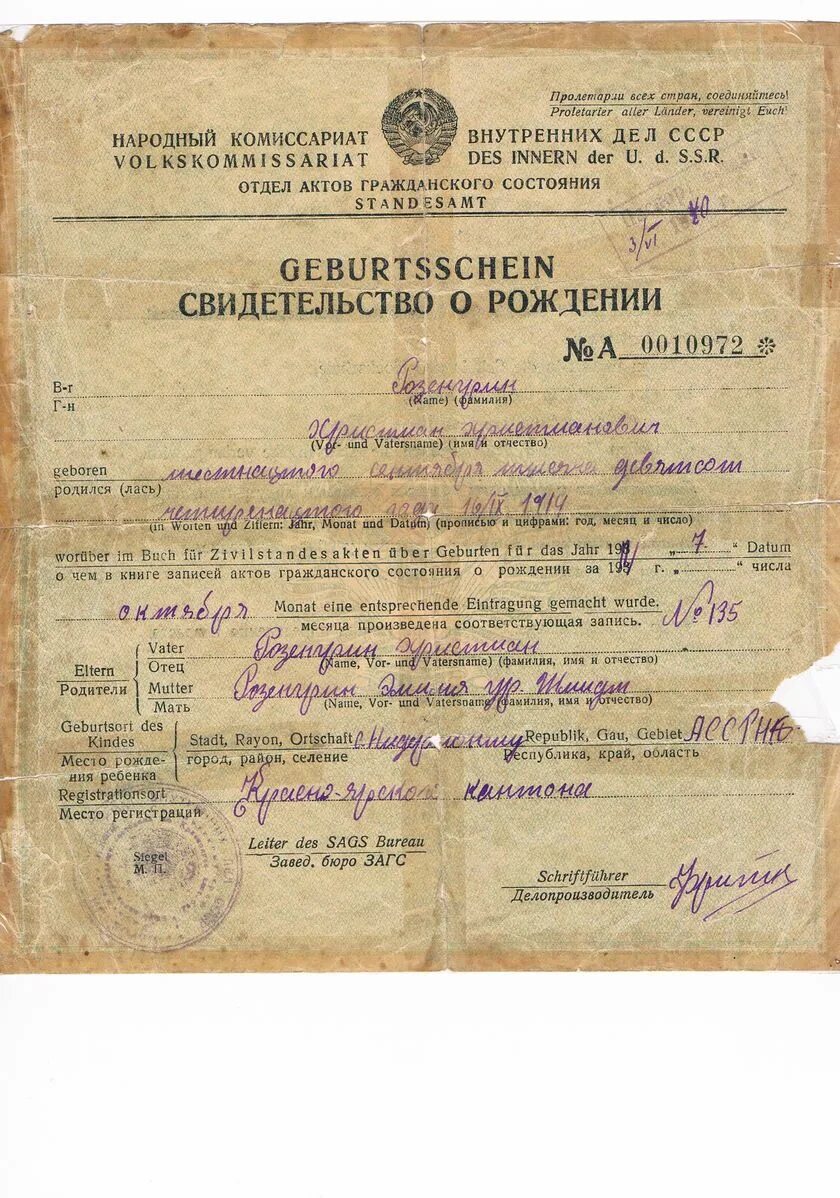 Пролетарии всех стран, соединяйтесь!
Proletarier aller Länder, vereinigt Euch!
НАРОДНЫЙ КОМИССАРИАТ ВНУТРЕННИХ ДЕЛ СССР
VOLKSKOMMISSARIAT DES INNERN der U. d. S.S.R.
ОТДЕЛ АКТОВ ГРАЖДАНСКОГО СОСТОЯНИЯ
STANDESAMT
3/VI 40
GEBURTSSCHEIN
СВИДЕТЕЛЬСТВО О РОЖДЕНИИ
№ А 0010972
В-г Розенгрин
Г-н (Name) (фамилия)
Христиан Христианович
(Vor- und Vatersname) (имя и отчество)
geboren шестнацтого сентября тысяча девятсот
родился (лась)
четиренацтого года 16/IX 1914
(in Worten und Ziffern: Jahr, Monat und Datum) (прописью и цифрами: год, месяц и число)
worüber im Buch für Zivilstandesakten über Geburten für das Jahr 193 „ 7 “ Datum
о чем в книге записей актов гражданского состояния о рождении за 193 г. „ “ числа
октября Monat eine entsprechende Eintragung gemacht wurde. № 135
месяца произведена соответствующая запись.
Eltern
Родители
Vater Розенгрин Христиан
Отец (Name, Vor- und Vatersname) (фамилия, имя и отчество)
Mutter Розенгрин Эмилия ур. Шмидт
Мать (Name, Vor- und Vatersname) (фамилия, имя и отчество)
Geburtsort des Kindes
Место рождения ребенка
Stadt, Rayon, Ortschaft Republik, Gau, Gebiet АССРНП
город, район, селение Республика, край, область
Registrationsort Красно-ярского кантона
Место регистрации
Leiter des SAGS Bureau
Завед. бюро ЗАГС
Siegel
М. П.
Schriftführer
Делопроизводитель